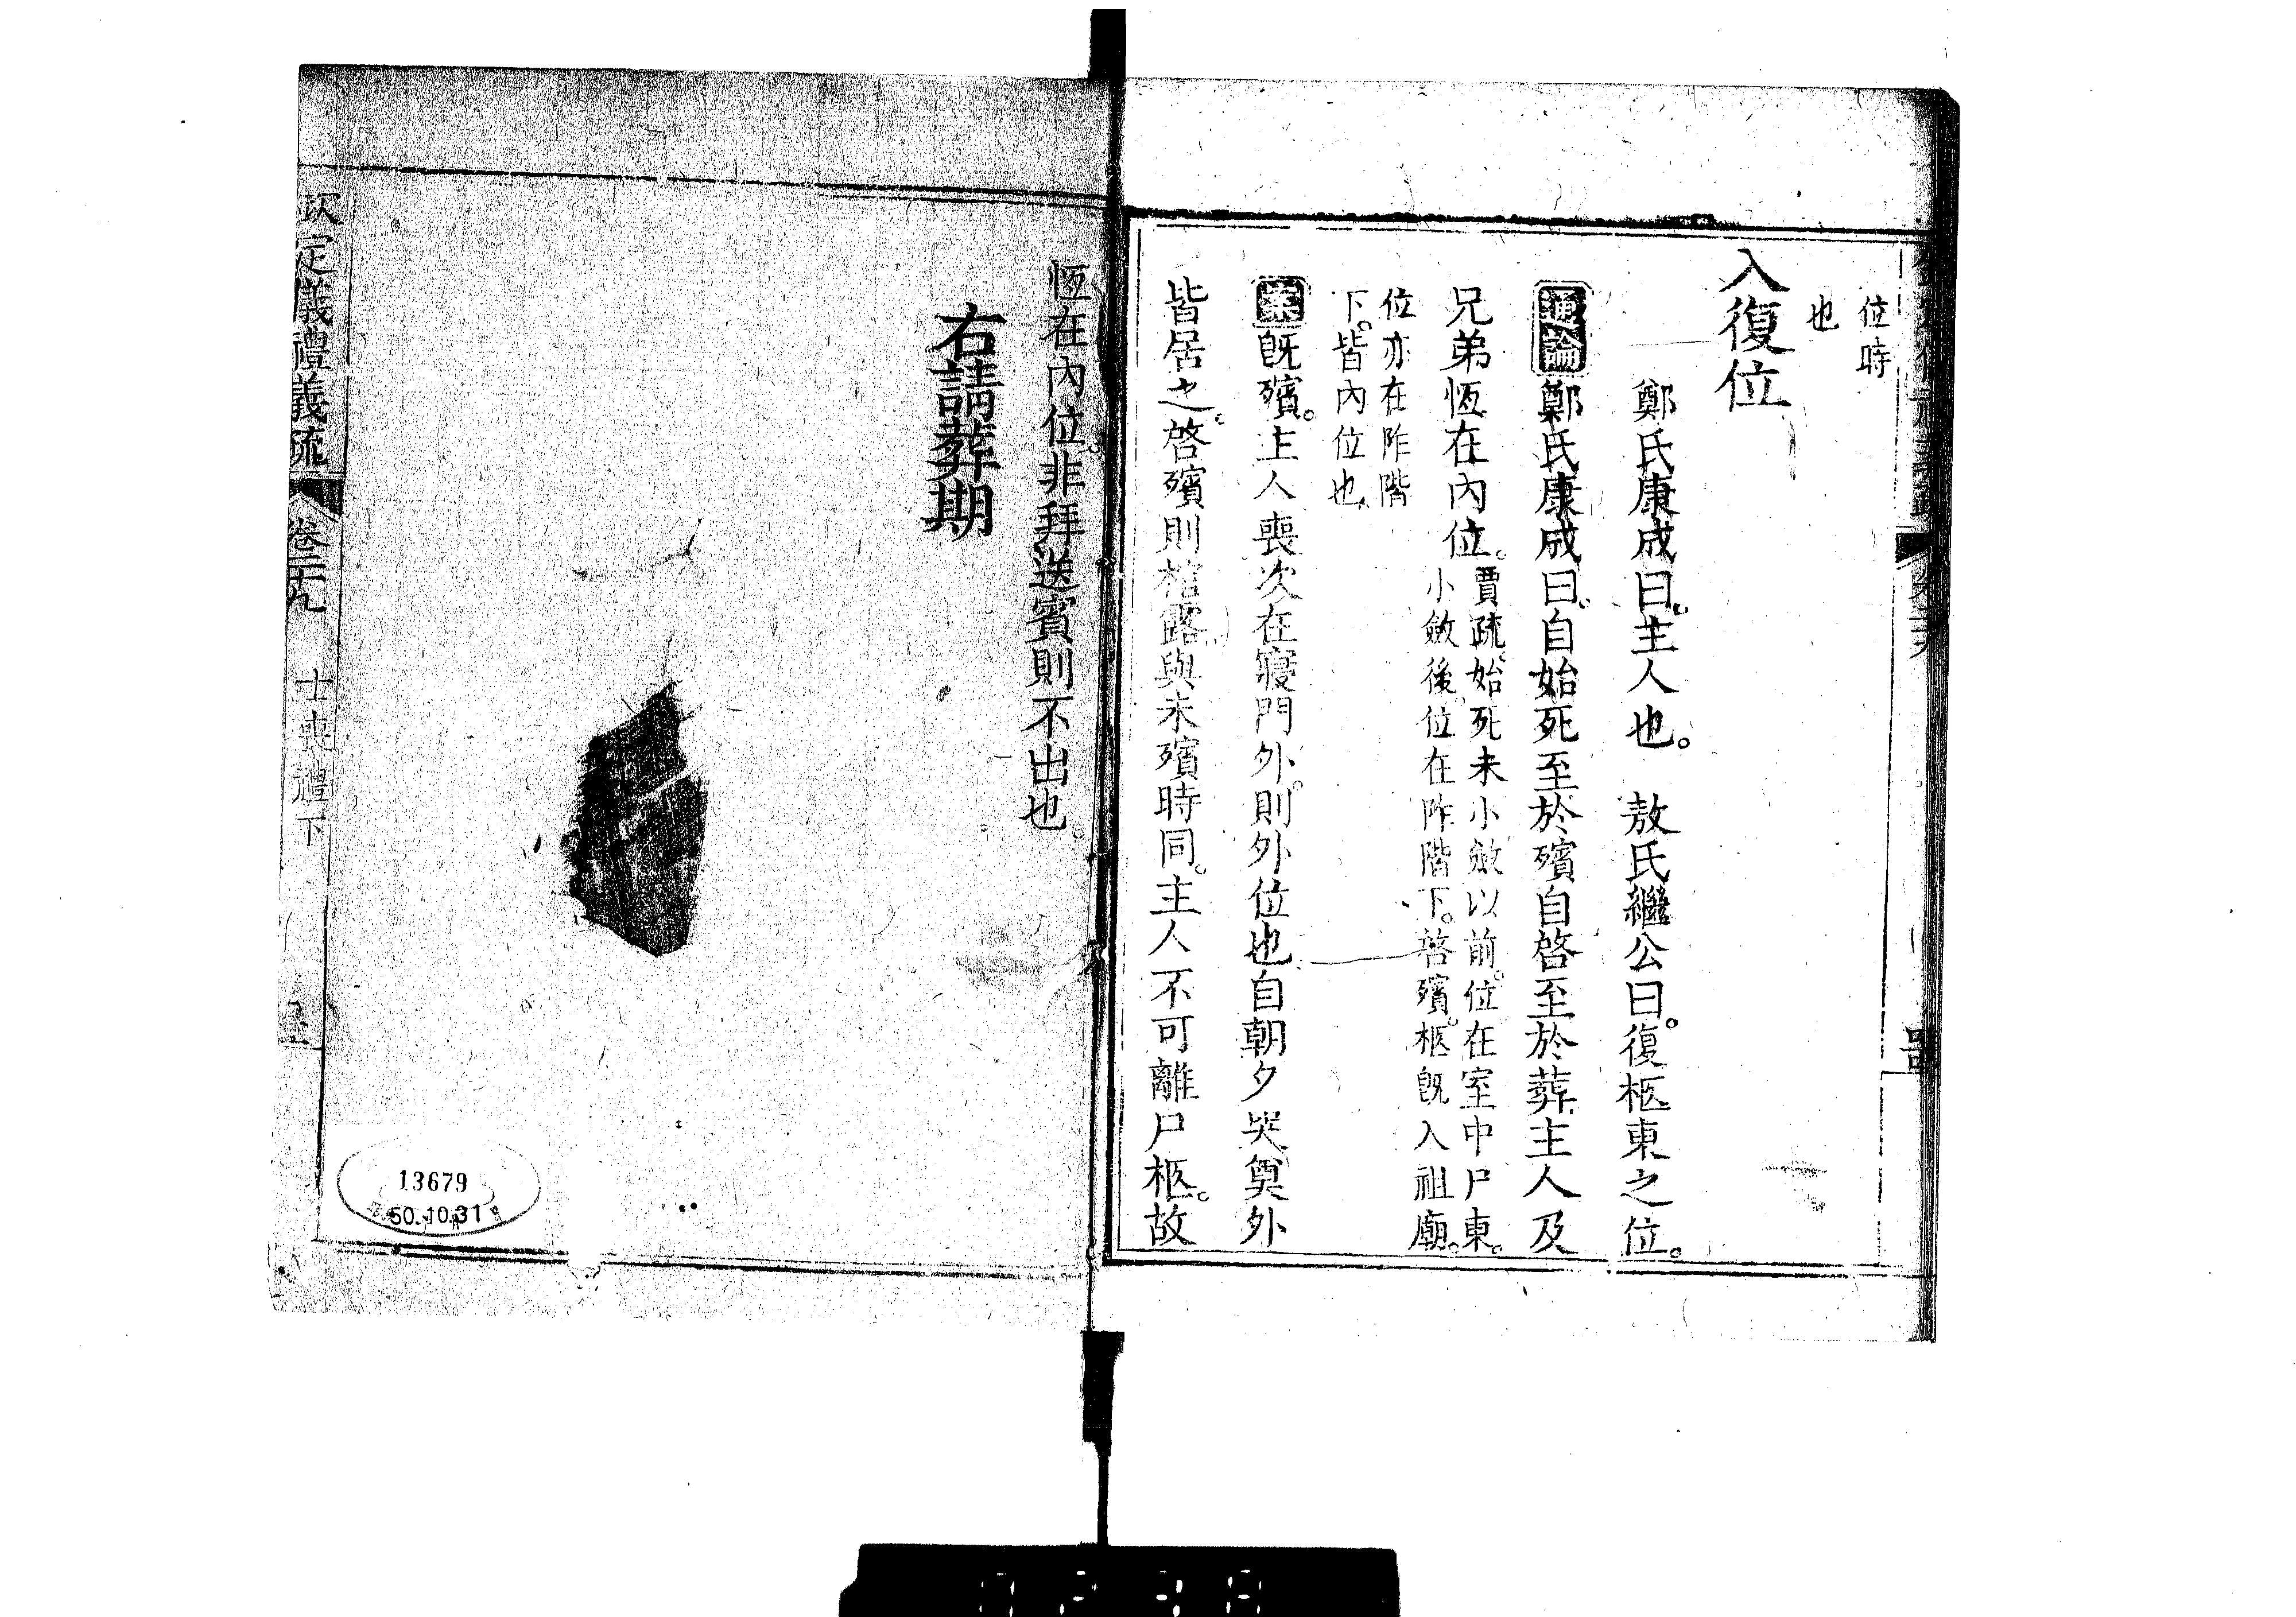 位時
也
入復位
鄭氏康成曰。主人也。　敖氏繼公曰。復柩東之位。
通論鄭氏康成曰。自始死至於殯自啓至於葬主人及
兄弟恆在內位。
賈疏。始死未小斂以前。位在室中尸東。
小斂後。位在阼階下。啓殯。柩旣入祖廟。
位亦在阼階
下。皆內位也
案旣殯。主人喪次在寢門外。則外位也自朝夕哭奠外
皆居之。啓殯則棺露與未殯時同。主人不可離尸柩。故
恆在內位。非拜送賓則不出也
右請葬期
欽定儀禮義疏　卷二十九　士喪禮下
13679
50.10.31